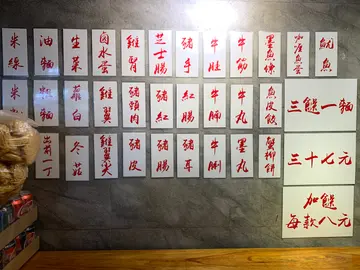 米線
油麵
生菜
鹵水蛋
雞腎
芝士腸
豬手
牛肚
牛筋
墨魚條
咖喱魚蛋
魷魚
蘿白
雞翼
豬頸肉
豬紅
紅腸
牛肺
牛丸
魚皮餃
三餸一麵
出前一丁
冬菇
雞翼尖
豬皮
豬腸
豬耳
牛脷
墨丸
蟹柳餅
三十七元
加餸
每款八元